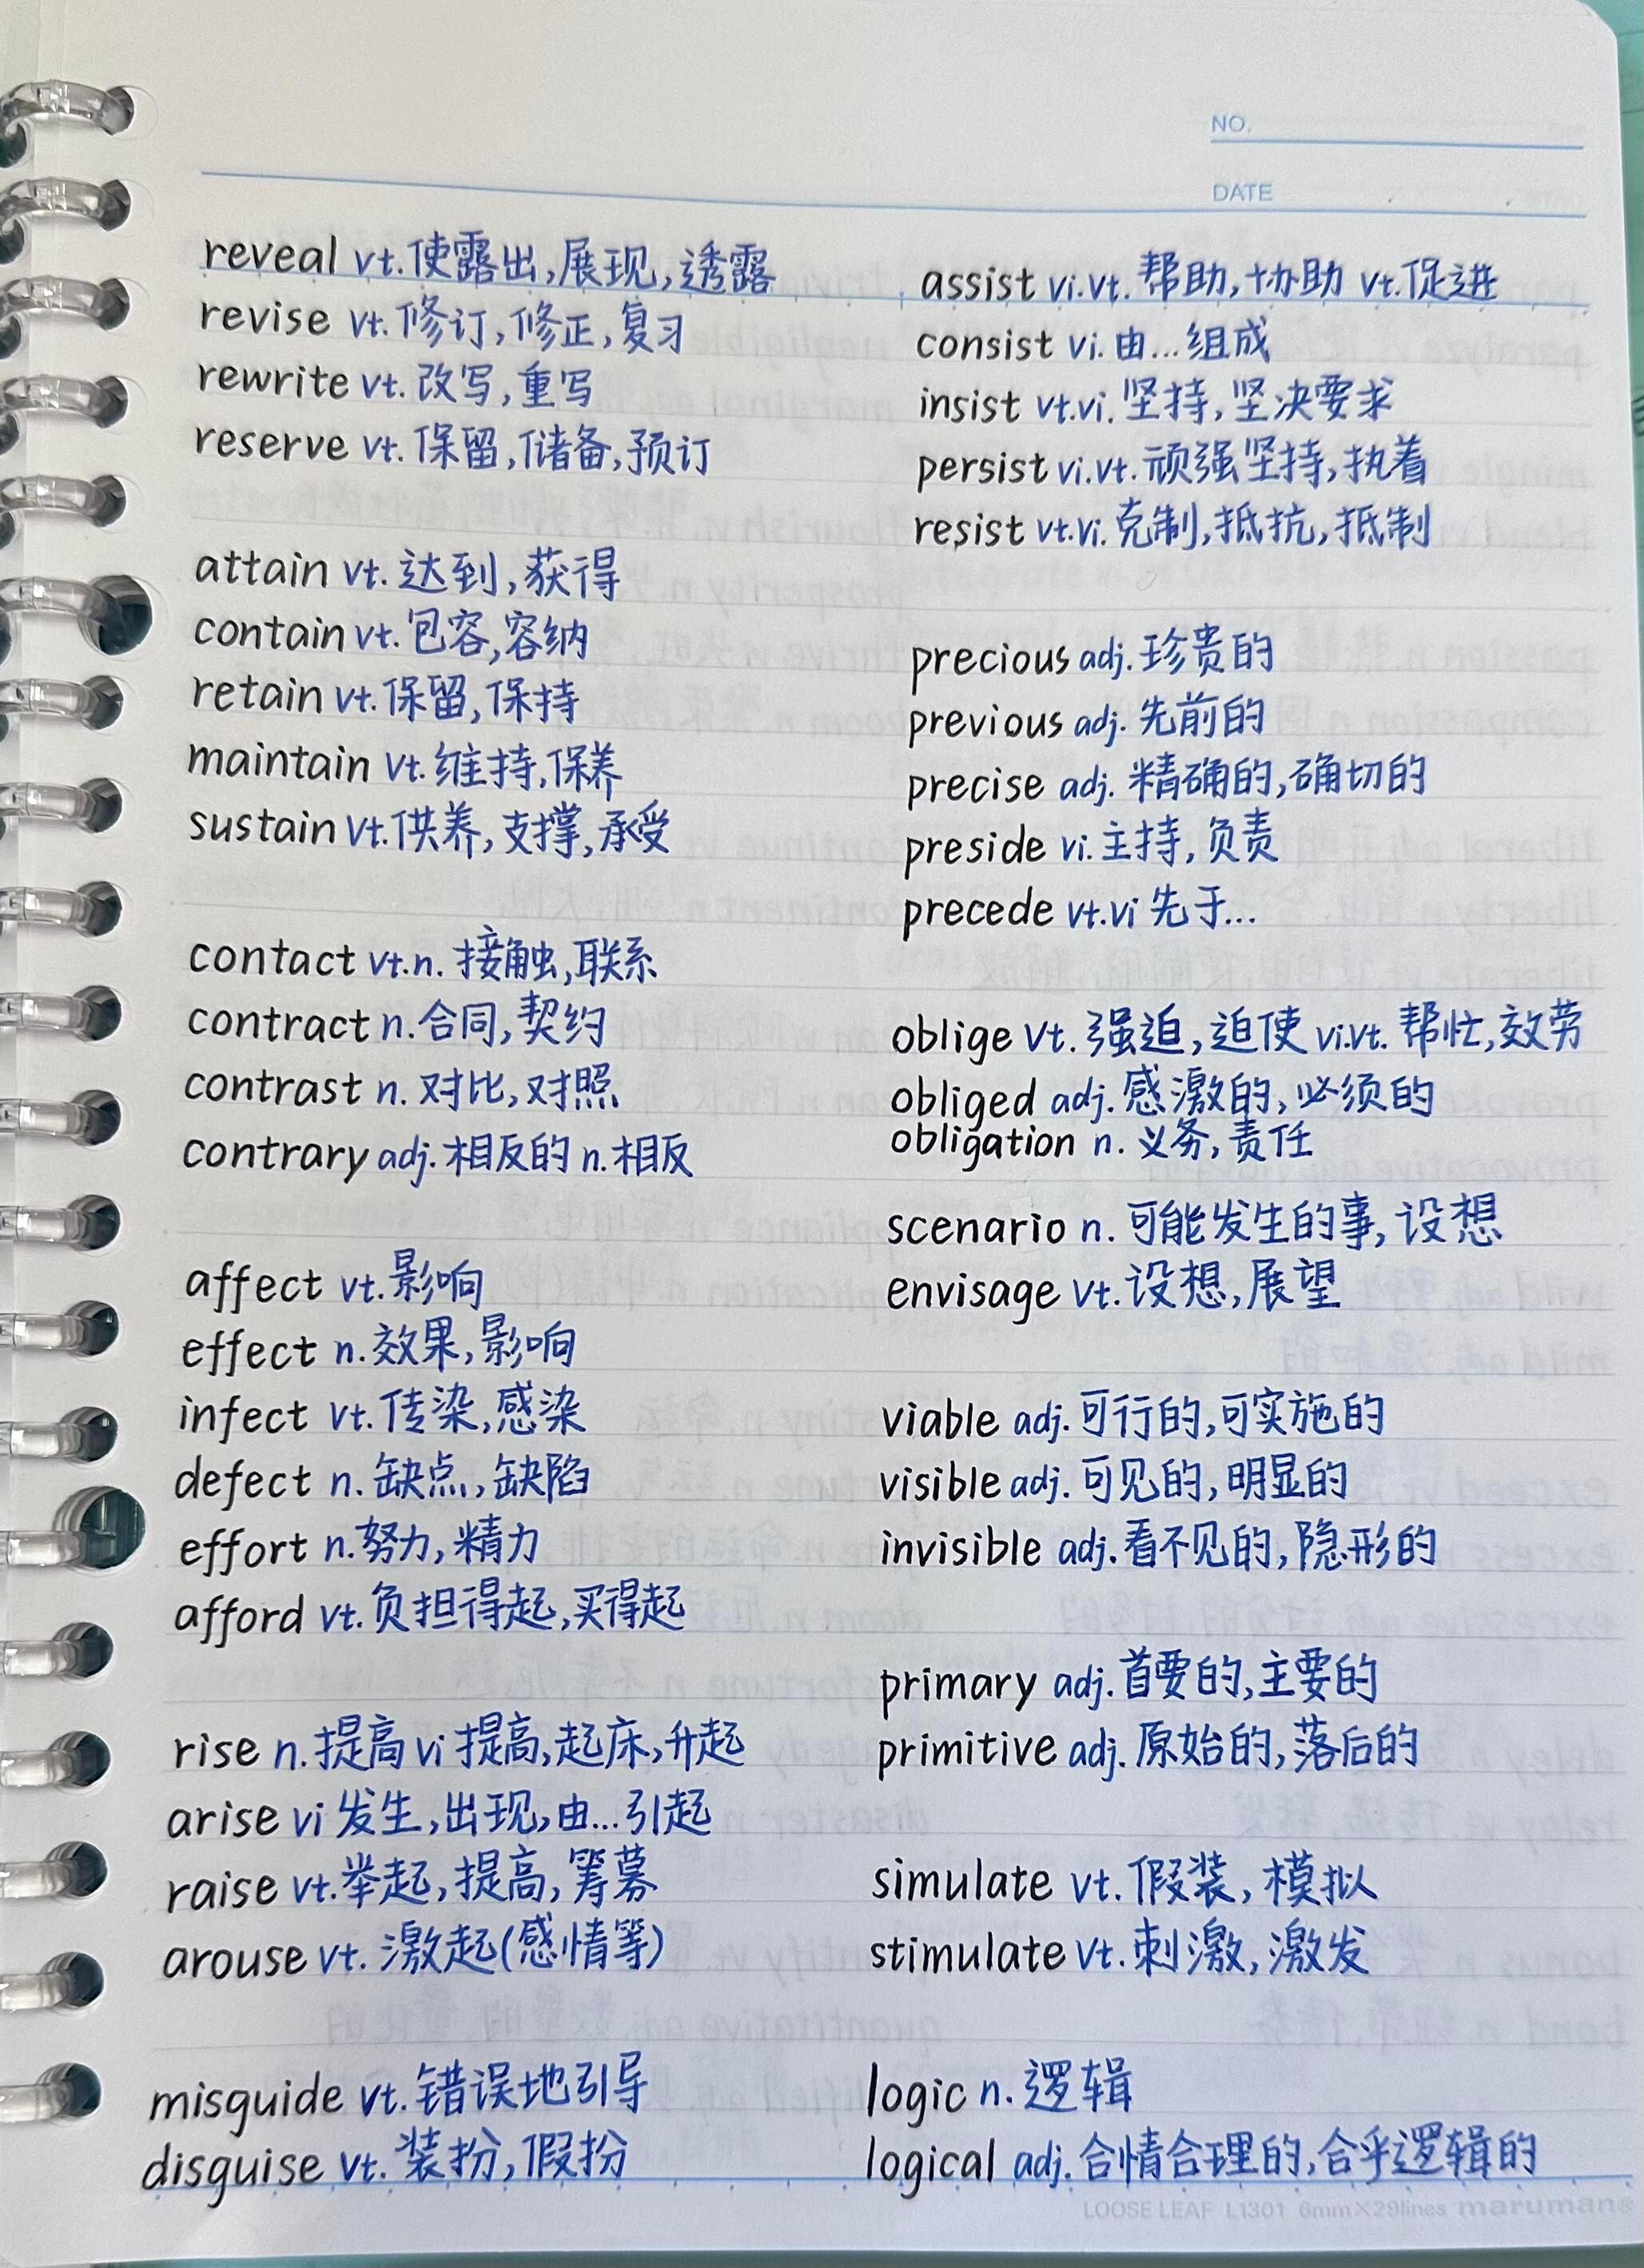 NO.
DATE
reveal vt.使露出,展现,透露
revise vt.修订,修正,复习
rewrite vt.改写,重写
reserve vt.保留,储备,预订
attain vt.达到,获得
contain vt.包容,容纳
retain vt.保留,保持
maintain vt.维持,保养
sustain vt.供养,支撑,承受
contact vt.n.接触,联系
contract n.合同,契约
contrast n.对比,对照
contrary adj.相反的 n.相反
affect vt.影响
effect n.效果,影响
infect vt.传染,感染
defect n.缺点,缺陷
effort n.努力,精力
afford vt.负担得起,买得起
rise n.提高 vi 提高,起床,升起
arise vi 发生,出现,由...引起
raise vt.举起,提高,筹募
arouse vt.激起(感情等)
misguide vt.错误地引导
disguise vt.装扮,假扮
assist vi.vt.帮助,协助 vt.促进
consist vi.由...组成
insist vt.vi.坚持,坚决要求
persist vi.vt.顽强坚持,执着
resist vt.vi.克制,抵抗,抵制
precious adj.珍贵的
previous adj.先前的
precise adj.精确的,确切的
preside vi.主持,负责
precede vt.vi 先于...
oblige vt.强迫,迫使 vi.vt.帮忙,效劳
obliged adj.感激的,必须的
obligation n.义务,责任
scenario n.可能发生的事,设想
envisage vt.设想,展望
viable adj.可行的,可实施的
visible adj.可见的,明显的
invisible adj.看不见的,隐形的
primary adj.首要的,主要的
primitive adj.原始的,落后的
simulate vt.假装,模拟
stimulate vt.刺激,激发
logic n.逻辑
logical adj.合情合理的,合乎逻辑的
LOOSE LEAF L1301 6mm×29lines maruman®